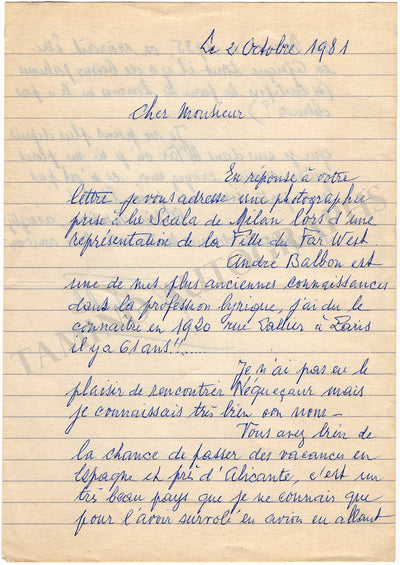 Le 2 Octobre 1981
Cher Monsieur,
En réponse à votre
lettre je vous adresse une photographie
prise à la Scala de Milan lors d'une
représentation de la Fille du Far West
André Balbon est
une de mes plus anciennes connaissances
dans la profession lyrique, j'ai du le
connaitre en 1920 rue à Paris
il y a 61 ans!!......
Je n'ai pas eu le
plaisir de rencontrer Nequeçaur mais
je connaissais très bien son nom –
Vous avez bien de
la chance de passer des vacances en
Espagne et près d'Alicante, c'est un
très beau pays que je ne connais que
pour l'avoir survolé en avion en allant